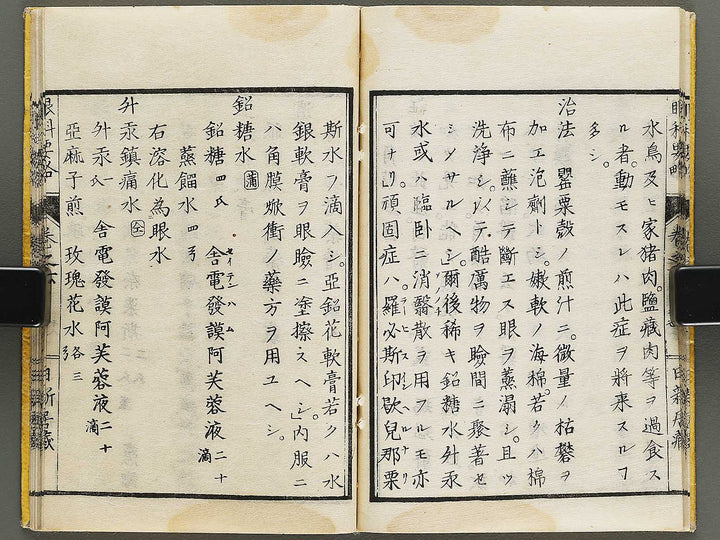 水鳥及ヒ家猪肉。鹽藏肉等ヲ過食ス
ル者。動モスレハ此症ヲ將来スルヿ
多シ。
治法 罌粟殼ノ煎汁ニ。微量ノ枯礬ヲ
加エ泡劑トシ。嫩軟ノ海棉。若クハ棉
布ニ蘸シテ斷エス眼ヲ蒸溻シ。且ツ
洗淨シ。以テ酷厲物ヲ瞼間ニ聚著セ
シメサルヘシ。爾後稀キ鉛糖水外汞
水或ハ臨臥ニ消翳散ヲ用フルモ亦
可ナリ。頑固症ハ。羅必斯印歇兒那栗
斯水ヲ滴入シ。亞鉛花軟膏若クハ水
銀軟膏ヲ眼瞼ニ塗擦スヘシ。内服ニ
ハ角膜焮衝ノ藥方ヲ用ユヘシ。
鉛糖水 蒲
鉛糖四氏 舎電發謨阿芙蓉液二十滴
セイデンハム
蒸餾水四ヲ
右溶化為眼水
外汞鎮痛水
外汞一氏 舎電發謨阿芙蓉液二十滴
亞麻子煎 玫瑰花水各三ヲ
眼科
卷之六
日新居藏